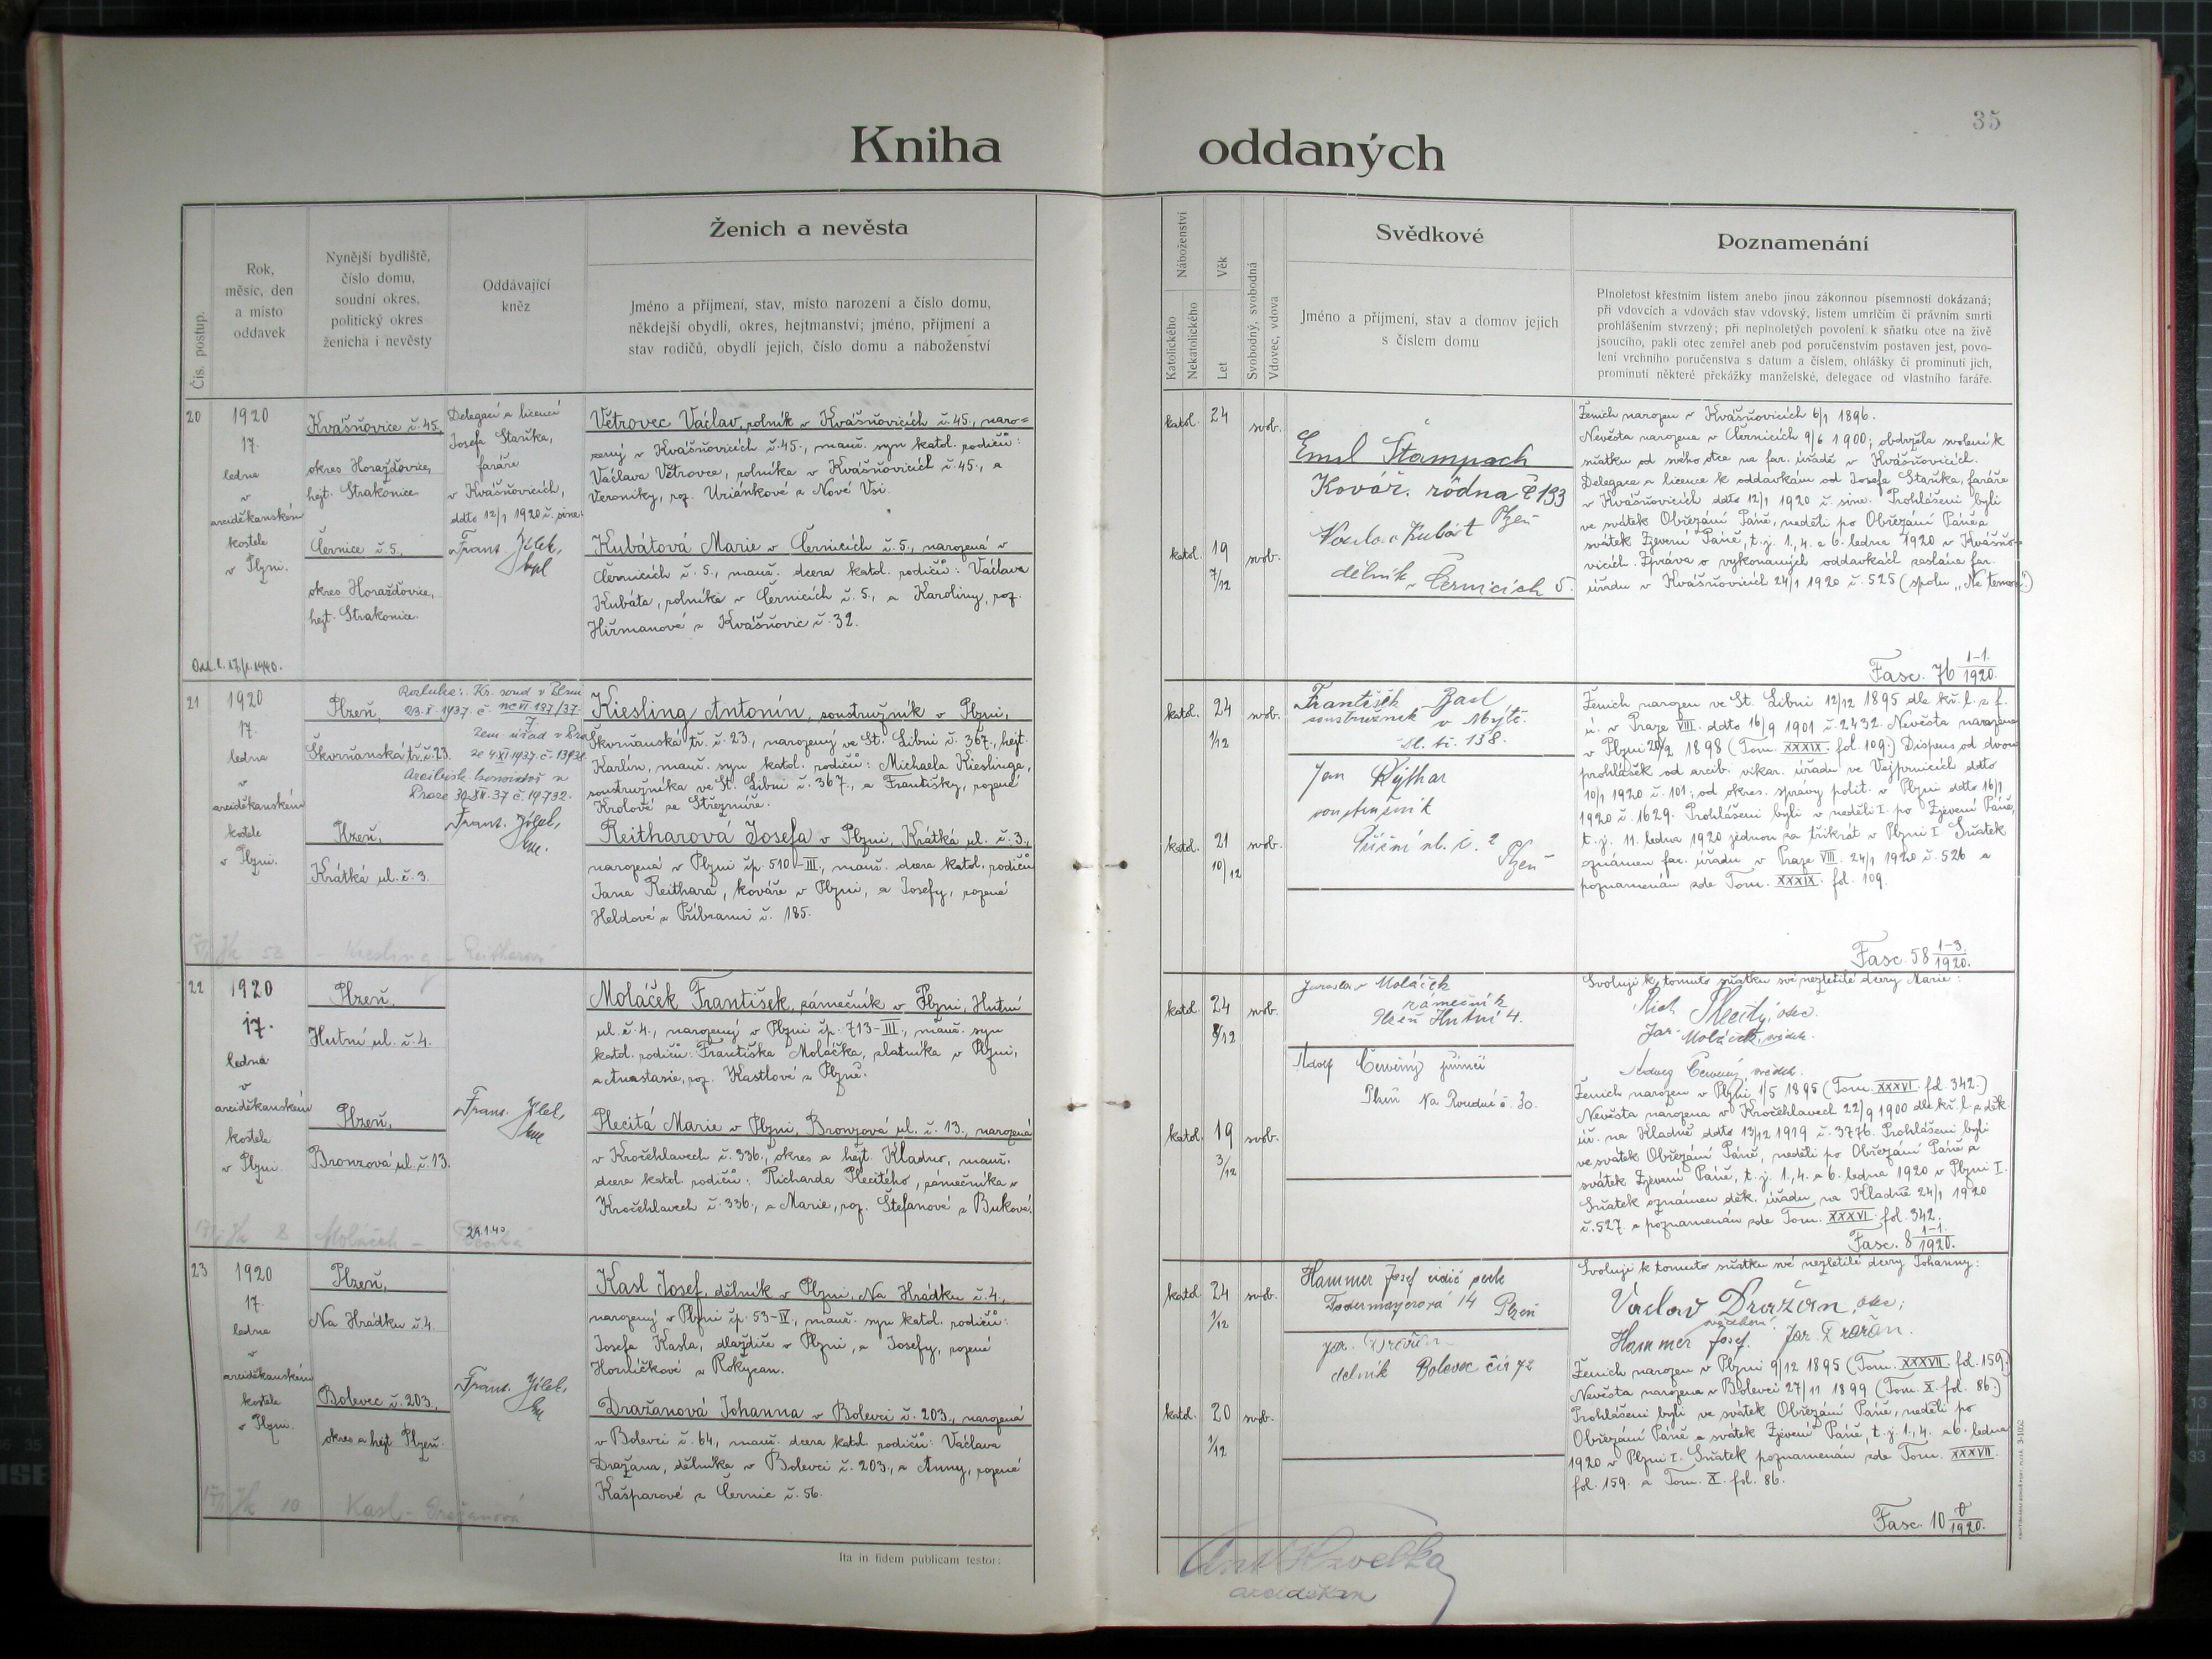 35
Kniha oddaných
Čís. postup.
Rok,
měsíc, den
a místo
oddavek
Nynější bydliště,
číslo domu,
soudní okres,
politický okres
ženicha i nevěsty
Oddávající
kněz
Ženich a nevěsta
Jméno a příjmení, stav, místo narození a číslo domu,
někdejší obydlí, okres, hejtmanství; jméno, příjmení a
stav rodičů, obydlí jejich, číslo domu a náboženství
Náboženství
Katolického
Nekatolického
Věk
Let
Svobodný, svobodná
Vdovec, vdova
Svědkové
Jméno a příjmení, stav a domov jejich
s číslem domu
Poznamenání
Plnoletost křestním listem anebo jinou zákonnou písemností dokázaná;
při vdovcích a vdovách stav vdovský, listem umrlčím či právním smrti
prohlášením stvrzený; při neplnoletých povolení k sňatku otce na živě
jsoucího, pakli otec zemřel aneb pod poručenstvím postaven jest, povo-
lení vrchního poručenstva s datum a číslem, ohlášky či prominutí jich,
prominutí některé překážky manželské, delegace od vlastního faráře.
20
1920
17.
ledna
v
arciděkanském
kostele
v Plzni.
Kvášňovice č. 45,
okres Horažďovice,
hejt. Strakonice.
Černice č. 5,
okres Horažďovice,
hejt. Strakonice.
Delegací a licencí
Josefa Staňka,
faráře
v Kvášňovicích,
ddto 12/1 1920 č. sine.
Frant. Jílek,
kpl
Větrovec Václav, rolník v Kvášňovicích č. 45., naro=
zený v Kvášňovicích č. 45., manž. syn katol. rodičů:
Václava Větrovce, rolníka v Kvášňovicích č. 45., a
Veroniky, roz. Uriánkové z Nové Vsi.
Kubátová Marie v Černicích č. 5., narozená v
Černicích č. 5., manž. dcera katol. rodičů: Václava
Kubáta, rolníka v Černicích č. 5., a Karoliny, roz.
Hiřmanové z Kvášňovic č. 32.
katol. 24 svob.
katol. 19 svob.
7/12
Emil Štampach
Kovář.
133
Plzeň
Kubát
dělník v Černicích 5.
Ženich narozen v Kvášňovicích 6/1 1896.
Nevěsta narozena v Černicích 9/6 1900; obdržela svolení k
sňatku od svého otce na far. úřadě v Kvášňovicích.
Delegace a licence k oddavkám od Josefa Staňka, faráře
v Kvášňovicích ddto 12/1 1920 č. sine. Prohlášeni byli
ve svátek Obřezání Páně, neděli po Obřezání Páně a
svátek Zjevení Páně, t. j. 1., 4. a 6. ledna 1920 v Kvášňo-
vicích. Zpráva o vykonaných oddavkách zaslána far.
úřadu v Kvášňovicích 24/1 1920 č. 525 (spolu „Ne temere“.)
Fasc. 76 1-1./1920.
21
1920
17.
ledna
v
arciděkanském
kostele
v Plzni.
Plzeň,
Škvrňanská tř. č. 23.
Plzeň,
Krátká ul. č. 3.
Rozluka: Kr. soud v Plzni
Frant. Jílek,
Kiesling Antonín, soustružník v Plzni,
Škvrňanská tř. č. 23., narozený ve St. Libni č. 367., hejt.
Karlín, manž. syn katol. rodičů: Michaela Kieslinga,
soustružníka ve St. Libni č. 367., a Františky, rozené
Krolové ze Střezmíře.
Reitharová Josefa v Plzni, Krátká ul. č. 3.,
narozená v Plzni čp. 510-III., manž. dcera katol. rodičů
Jana Reithara, kováře v Plzni, a Josefy, rozené
Heldové z Příbrami č. 185.
Kiesling - Reitharová
katol. 24 svob.
1/12
katol. 21 svob.
10/12
František Basl
soustružník v Mýtě.
138.
Jan
soustružník
ul. č. 2
Plzeň
Ženich narozen ve St. Libni 12/12 1895 dle kř. l. z f.
ú. v Praze VIII. ddto 16/9 1901 č. 2432. Nevěsta narozena
v Plzni 20/2 1898 (Tom. XXXIX. fol. 109.) Dispens od dvou
prohlášek od arcib. vikar. úřadu ve Vejprnicích ddto
10/1 1920 č. 101., od okres. správy polit. v Plzni ddto 16/1
1920 č. 1629. Prohlášeni byli v neděli I. po Zjevení Páně,
t. j. 11. ledna 1920 jednou za třikrát v Plzni I. Sňatek
oznámen far. úřadu v Praze VIII. 24/1 1920 č. 526 a
poznamenán zde Tom. XXXIX. fol. 109.
Fasc. 58 1-3./1920.
22
1920
17.
ledna
v
arciděkanském
kostele
v Plzni.
Plzeň,
Hutní ul. č. 4.
Plzeň,
Bronzová ul. č. 13.
Frant. Jílek,
Moláček František, zámečník v Plzni, Hutní
ul. č. 4., narozený v Plzni čp. 713-III., manž. syn
katol. rodičů: Františka Moláčka, zlatníka v Plzni,
a Anastasie, roz. Kastlové z Plzně.
Plecitá Marie v Plzni, Bronzová ul. č. 13., narozená
v Kročehlavech č. 336., okres a hejt. Kladno, manž.
dcera katol. rodičů: Richarda Plecitého, zámečníka v
Kročehlavech č. 336., a Marie, roz. Štefanové z Bukové.
Moláček -
katol. 24 svob.
8/12
katol. 19 svob.
3/12
Jaroslav Moláček
zámečník
Plzeň Hutní 4.
Adolf Červený
Plzeň Na Roudné č. 30.
Svoluji k tomuto sňatku své nezletilé dcery Marie:
Rich. Plecitý, otec.
Jar. Moláček, svědek.
Červený svědek.
Ženich narozen v Plzni 1/5 1895 (Tom. XXXVI. fol. 342.)
Nevěsta narozena v Kročehlavech 22/9 1900 dle kř. l. z děk.
úř. na Kladně ddto 13/12 1919 č. 3776. Prohlášeni byli
ve svátek Obřezání Páně, neděli po Obřezání Páně a
svátek Zjevení Páně, t. j. 1., 4. a 6. ledna 1920 v Plzni I.
Sňatek oznámen děk. úřadu na Kladně 24/1 1920
č. 527. a poznamenán zde Tom. XXXVI. fol. 342.
Fasc. 8 1-1./1920.
23
1920
17.
ledna
v
arciděkanském
kostele
v Plzni.
Plzeň,
Na Hrádku č. 4.
Bolevec č. 203,
okres a hejt. Plzeň.
Frant. Jílek,
Kasl Josef, dělník v Plzni, Na Hrádku č. 4.,
narozený v Plzni čp. 53-IV., manž. syn katol. rodičů:
Josefa Kasla, dlaždiče v Plzni, a Josefy, rozené
Horničkové z Rokycan.
Dražanová Johanna v Bolevci č. 203., narozená
v Bolevci č. 64, manž. dcera katol. rodičů: Václava
Dražana, dělníka v Bolevci č. 203., a Anny, rozené
Kašparové z Černic č. 56.
Kasl - Dražanová
katol. 24 svob.
1/12
katol. 20 svob.
1/12
Hammer Josef řidič
14 Plzeň
Jar. Dražan
dělník Bolevec
Svoluji k tomuto sňatku své nezletilé dcery Johanny:
Václav Dražan, otec;
svědkové:
Hammer Josef. Jar. Dražan.
Ženich narozen v Plzni 9/12 1895 (Tom. XXXVII. fol. 159.)
Nevěsta narozena v Bolevci 27/11 1899 (Tom. X. fol. 86.)
Prohlášeni byli ve svátek Obřezání Páně, neděli po
Obřezání Páně a svátek Zjevení Páně, t. j. 1., 4. a 6. ledna
1920 v Plzni I. Sňatek poznamenán zde Tom. XXXVII.
fol. 159. a Tom. X. fol. 86.
Fasc. 10 /1920.
Ita in fidem publicam testor:
Ant. Havelka
arciděkan